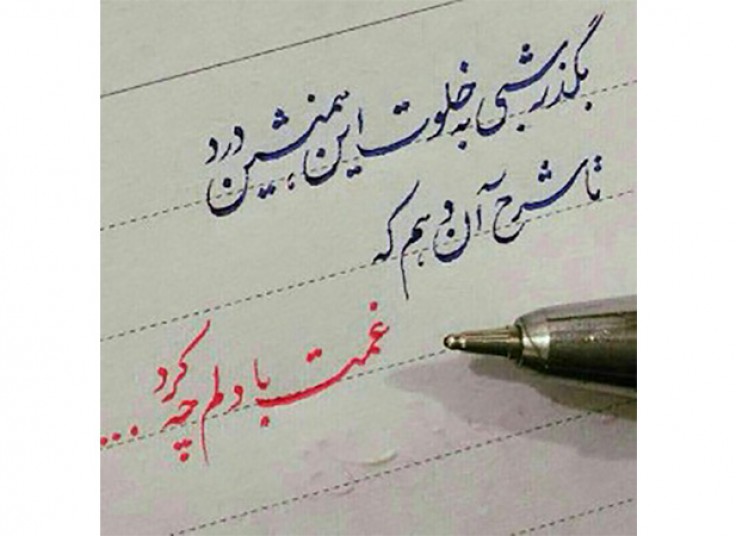 بگذر شبی به خلوت این همنشین درد
تا شرح آن دهم که
غمت با دلم چه کرد ...